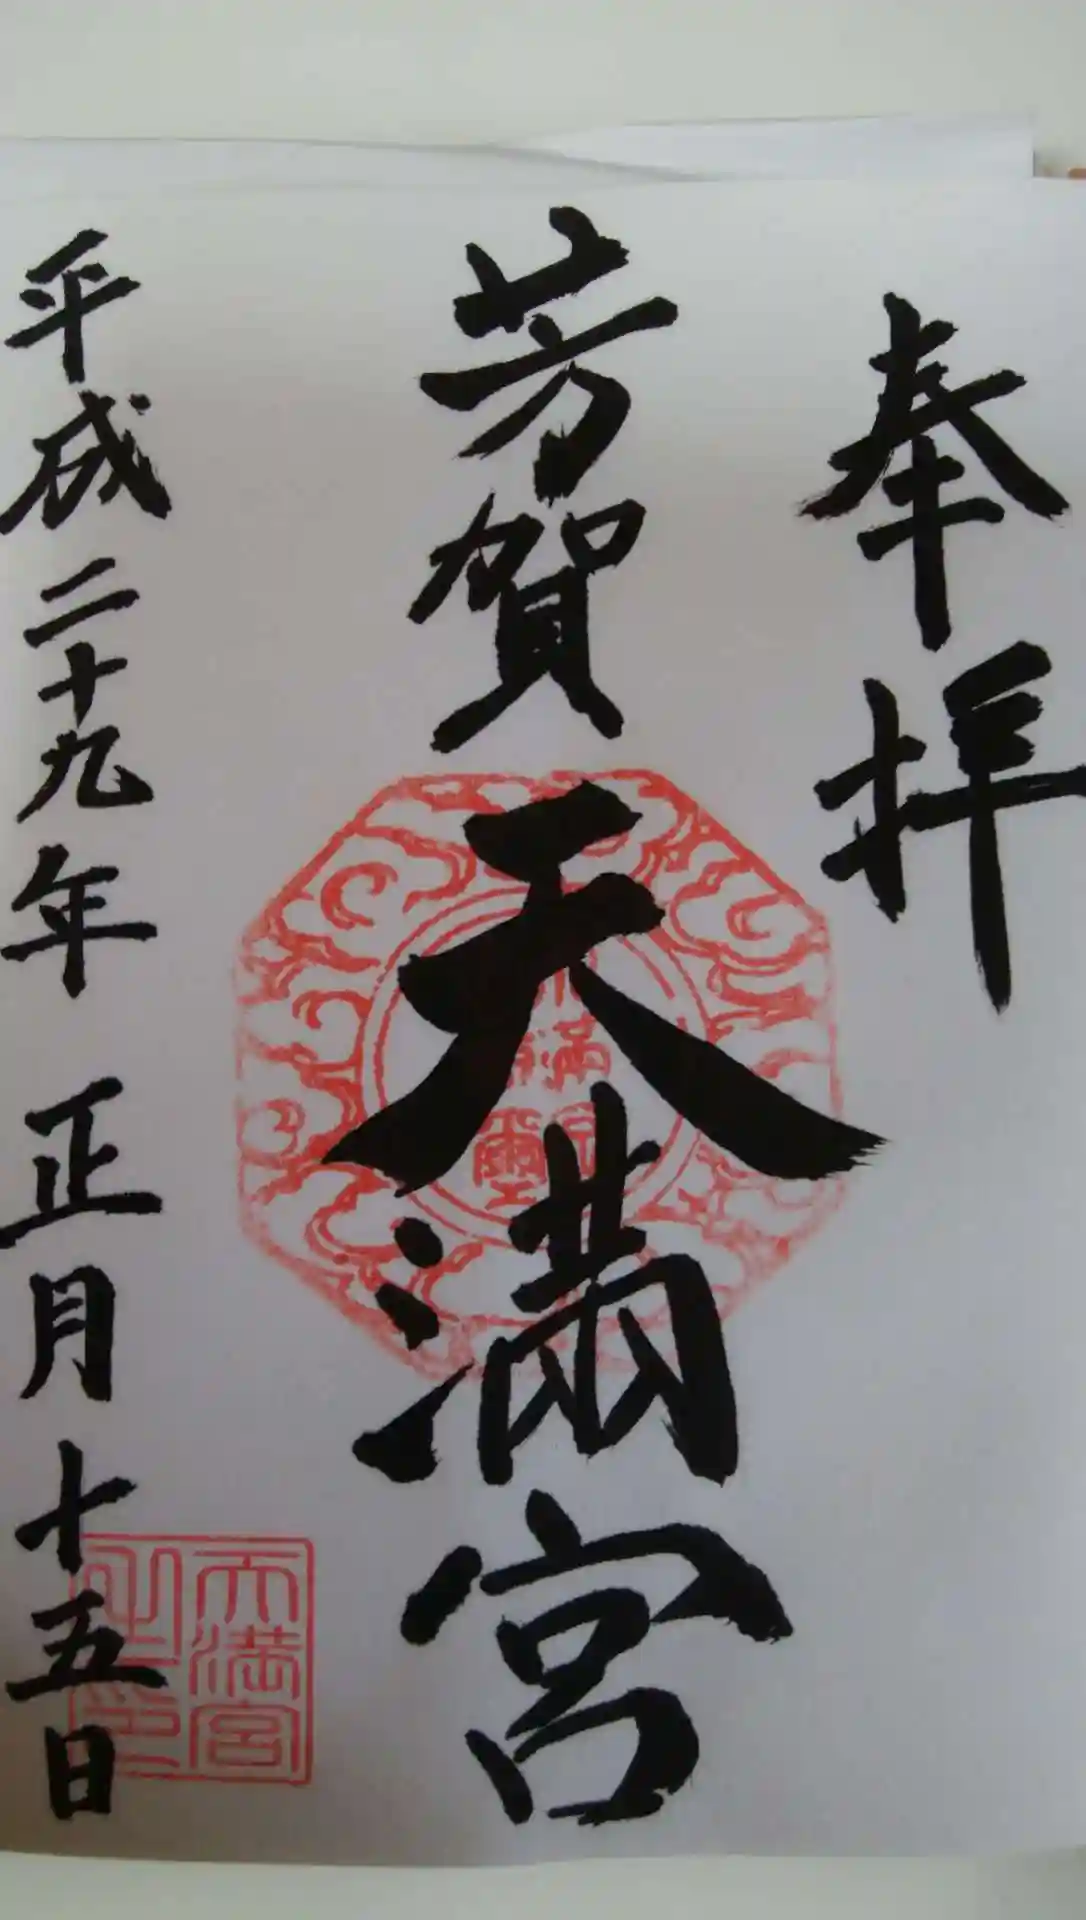 奉拝
芳賀天満宮
平成二十九年 正月十五日
天満宮
之印